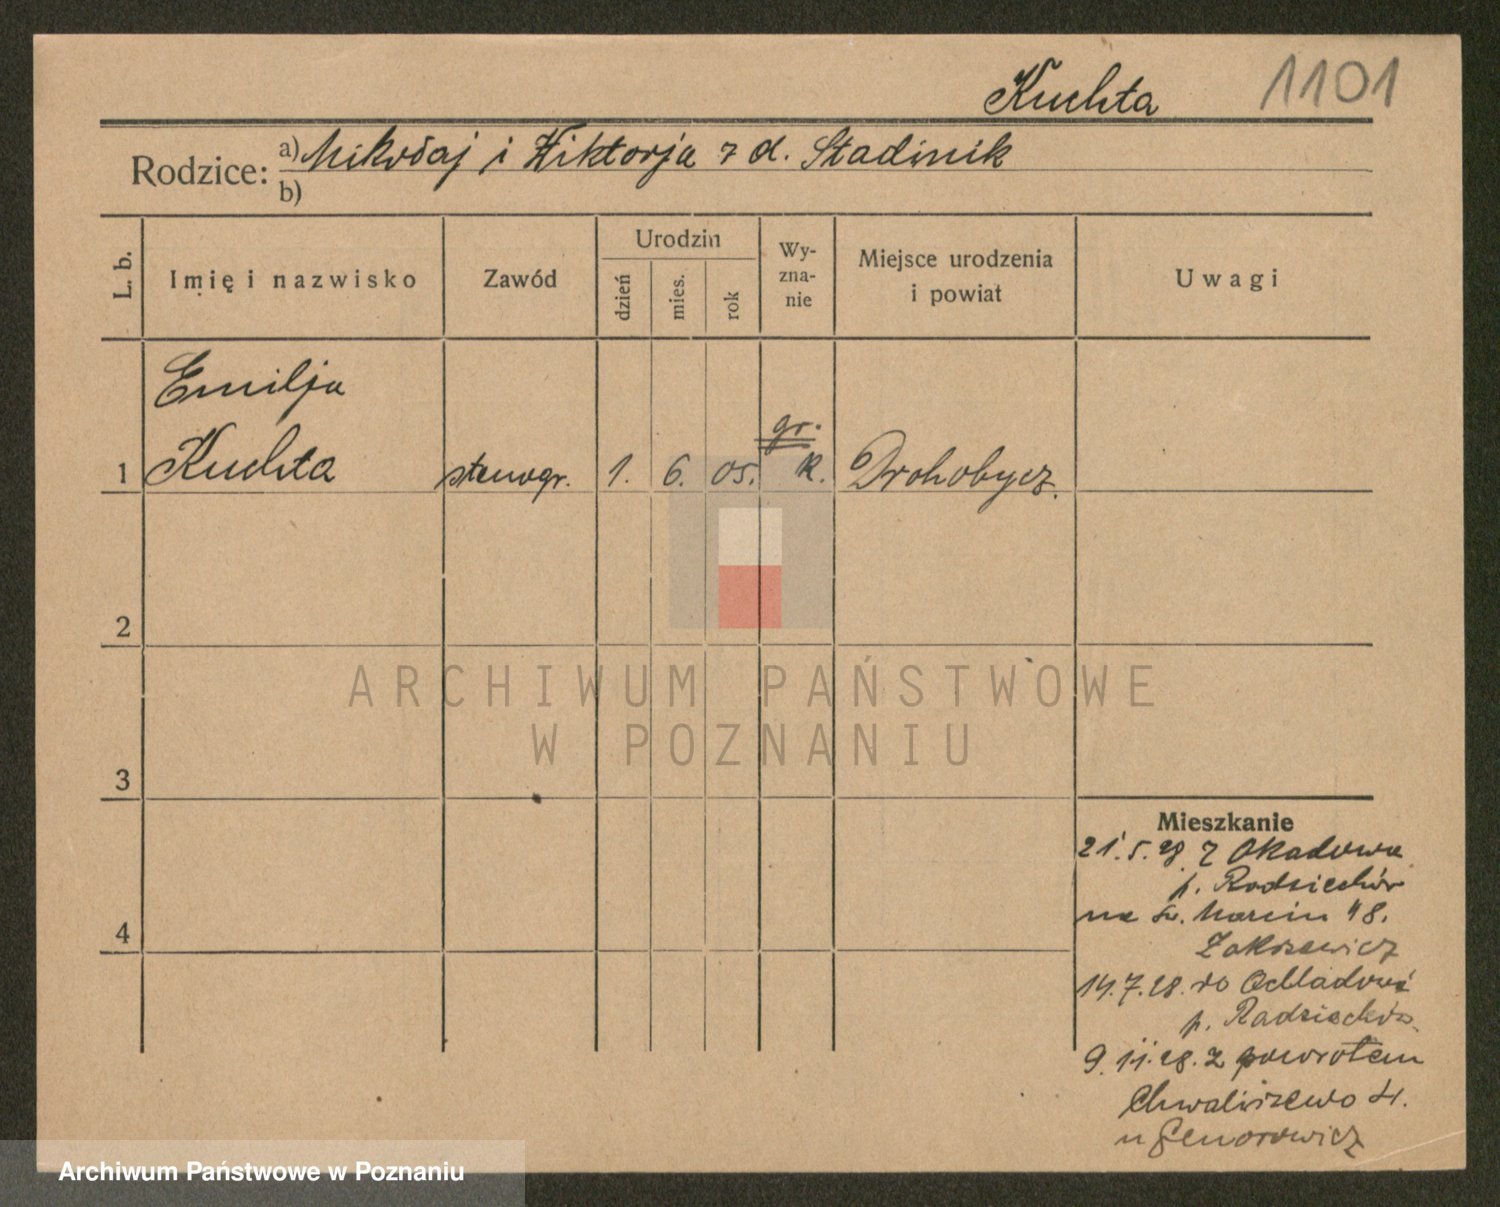 Kuchta 1101
Rodzice: a) Mikołaj i Wiktorja z d. Stadinik
b)
L. b. Imię i nazwisko Zawód Urodzin dzień mies. rok Wy-zna-nie Miejsce urodzenia i powiat Uwagi
Emilja
gr.
1 Kuchta stenogr. 1. 6. 05. k. Drohobycz.
2
ARCHIWUM PAŃSTWOWE
W POZNANIU
3
Mieszkanie
21.5.28 z Okadowa
p. Radziechów
na św. Marcin 48.
4
Zakrzewicz
14.7.28. do Ochladowa
p. Radziechów
9.11.28. z powrotem
Chwaliszewo
u
Archiwum Państwowe w Poznaniu